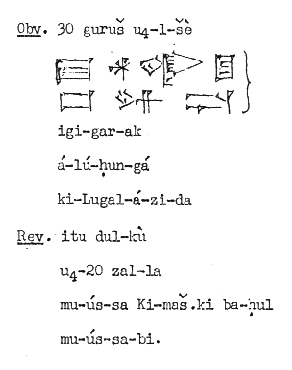 Obv. 30 guruš u₄-1-šè
igi-gar-ak
á-lú-ḫun-gá
ki-Lugal-á-zi-da
Rev. itu dul-kù
u₄-20 zal-la
mu-ús-sa Ki-maš.ki ba-ḫul
mu-ús-sa-bi.